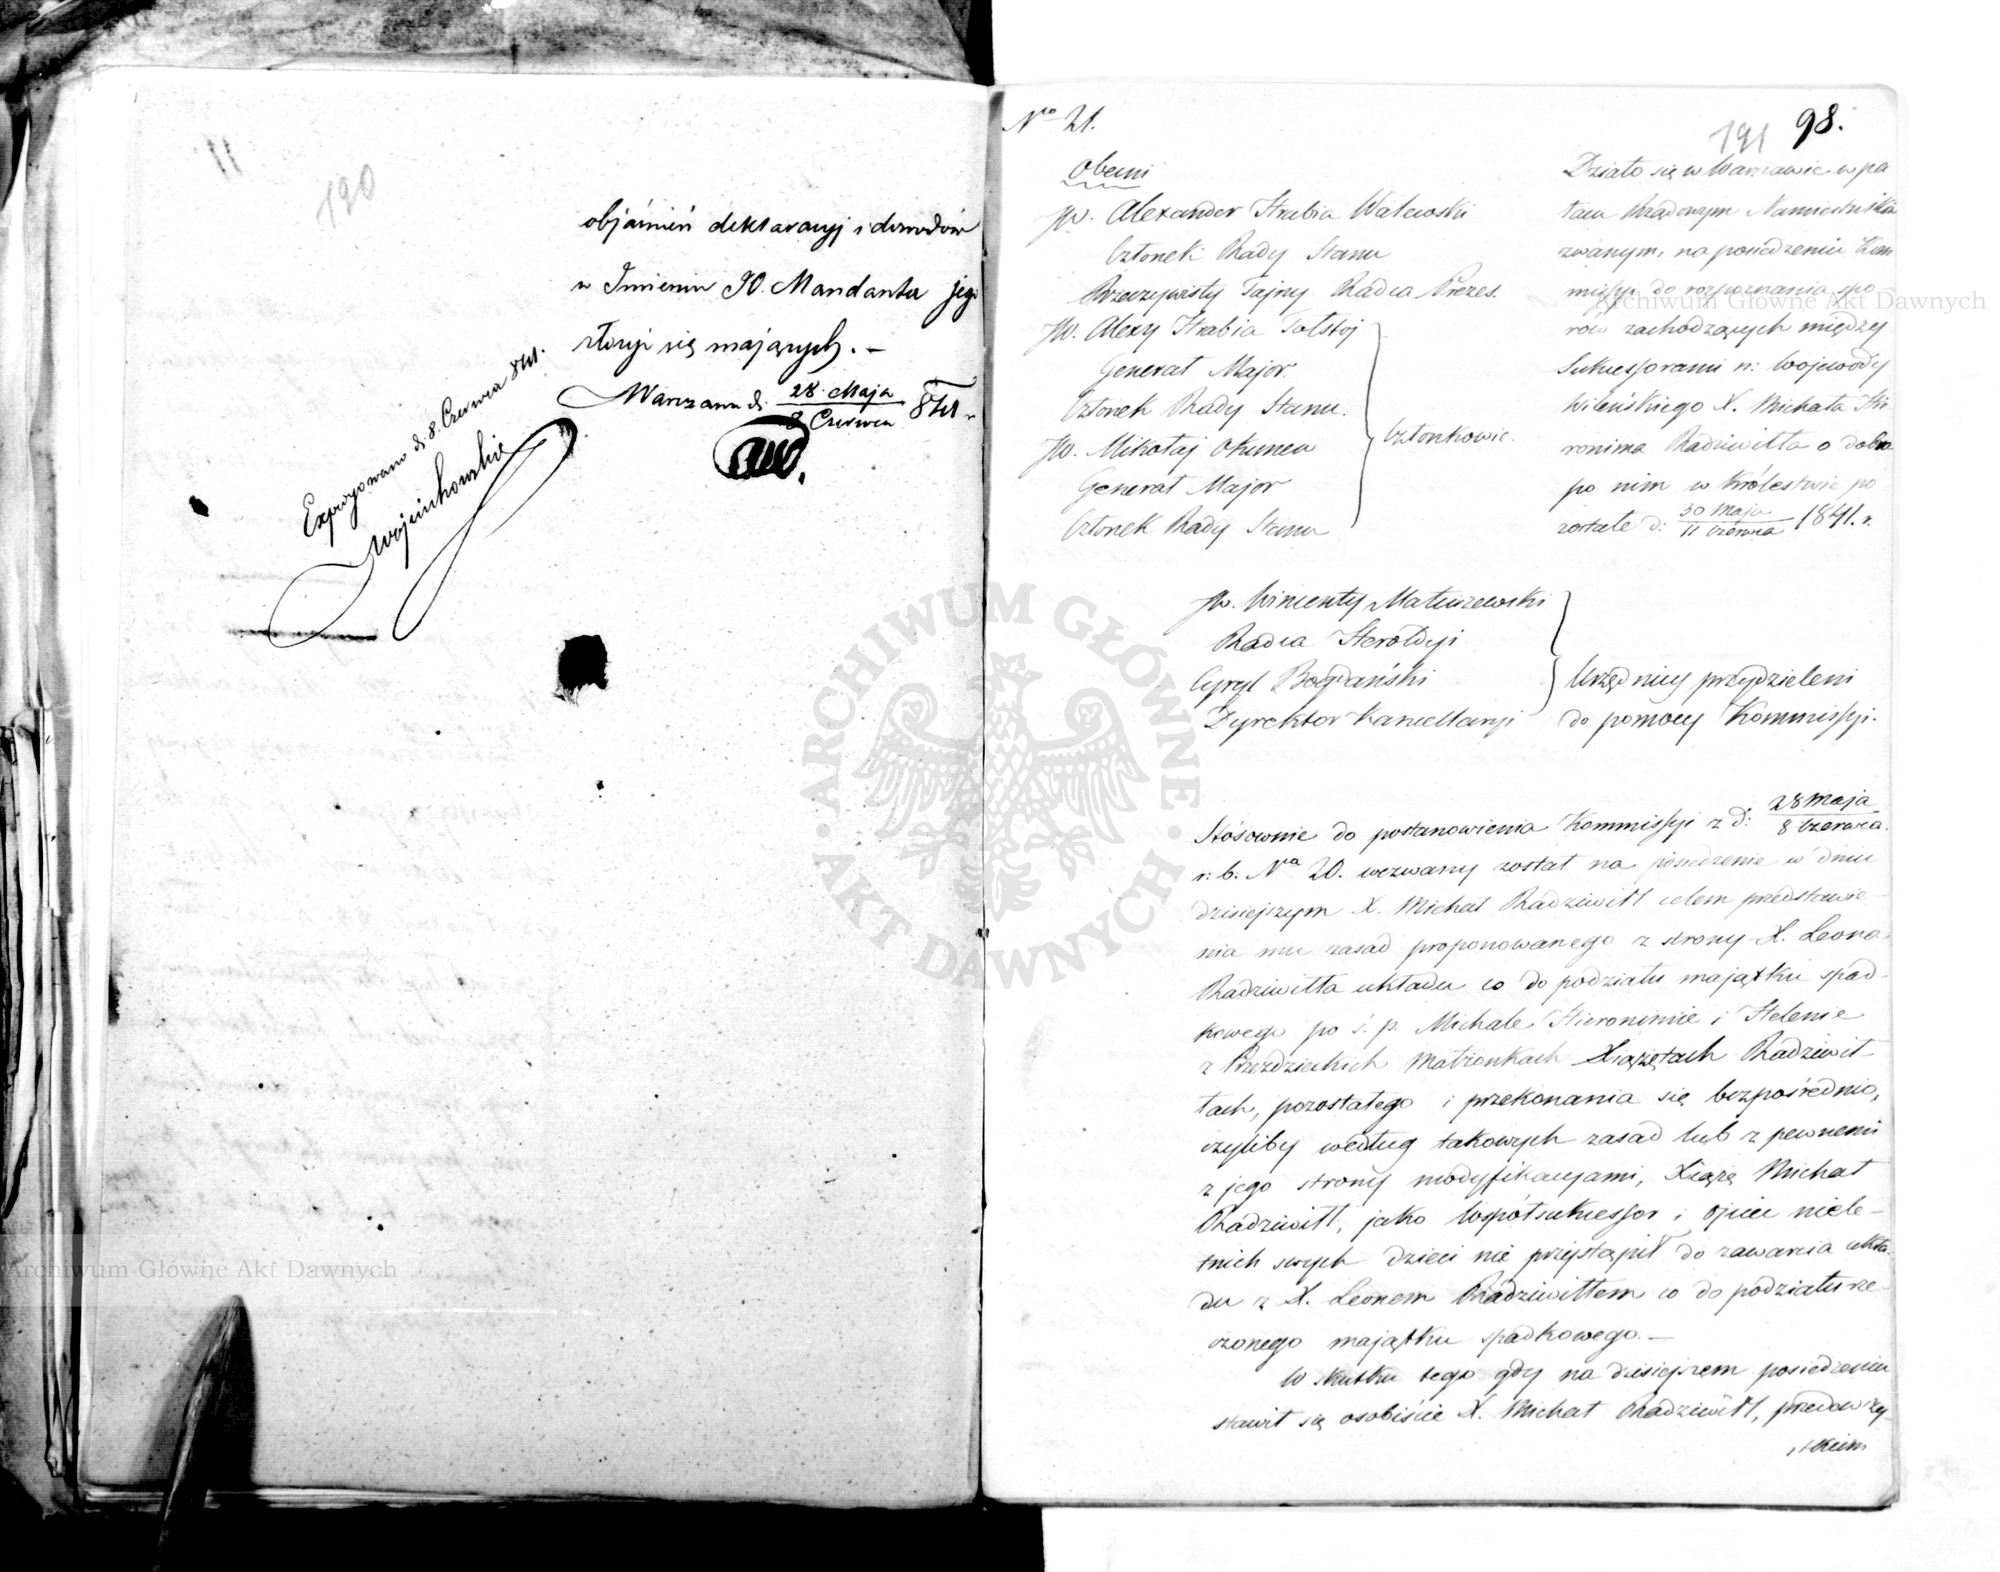 120
objáśnień deklaracyj i dowodów
w Imieniu JO. Mandanta jego
złożyć się mających. —
Warszawa d. 28. Maja / 8 Czerwca 841 r.
Expedyowano d. 8. Czerwca 841.
Wojciechowski
Nro 21.
191 98.
Obecni
JW. Alexander Hrabia Walewski
Członek Rady Stanu
Rzeczywisty Tajny Radca Prezes.
JW. Alexy Hrabia Tołstoj
Generał Major.
Członek Rady Stanu.
JW. Mikołaj Okunew
Generał Major
Członek Rady Stanu
Członkowie.
Działo się w Warszawie w pa
łacu Rządowym Namiestnikow
zwanym, na posiedzeniu Kom
missyi do rozpoznania spo
rów zachodzących między
Sukcessorami n: Wojewody
Wileńskiego X. Michała Hie
ronima Radziwiłła o dobra
po nim w Królestwie po
zostałe d: 30 Maja / 11 Czerwca 1841. r.
JW. Wincenty Matuszewski
Radca Heroldyi
Cyryl Bogdański
Dyrektor Kancellaryi
Urzędnicy przydzieleni
do pomocy Kommissyi.
Stósownie do postanowienia Kommissyi z d: 28 Maja / 8 Czerwca.
r: b: Nra 20. wezwany został na posiedzenie w dniu
dzisiejszym X. Michał Radziwiłł celem przedstawie-
nia mu zasad proponowanego z strony X. Leona
Radziwiłła układu co do podziału majątku spad-
kowego po ś. p. Michale Hieronimie i Helenie
z Przezdzieckich Małżonkach Xiążętach Radziwił-
łach, pozostałego i przekonania się bezpośrednio,
czyliby według takowych zasad lub z pewnemi
z jego strony modyfikacyami, Xiążę Michał
Radziwiłł, jako Współsukcessor i Ojciec niele-
tnich swych dzieci nie przystąpił do zawarcia ukła-
du z X. Leonem Radziwiłłem co do podziału rze-
czonego majątku spadkowego. —
W skutku tego gdy na dzisiejszem posiedzeniu
stawił się osobiście X. Michał Radziwiłł, przedewszy-
stkiem
Archiwum Główne Akt Dawnych
Archiwum Główne Akt Dawnych
ARCHIWUM GŁÓWNE · AKT DAWNYCH ·